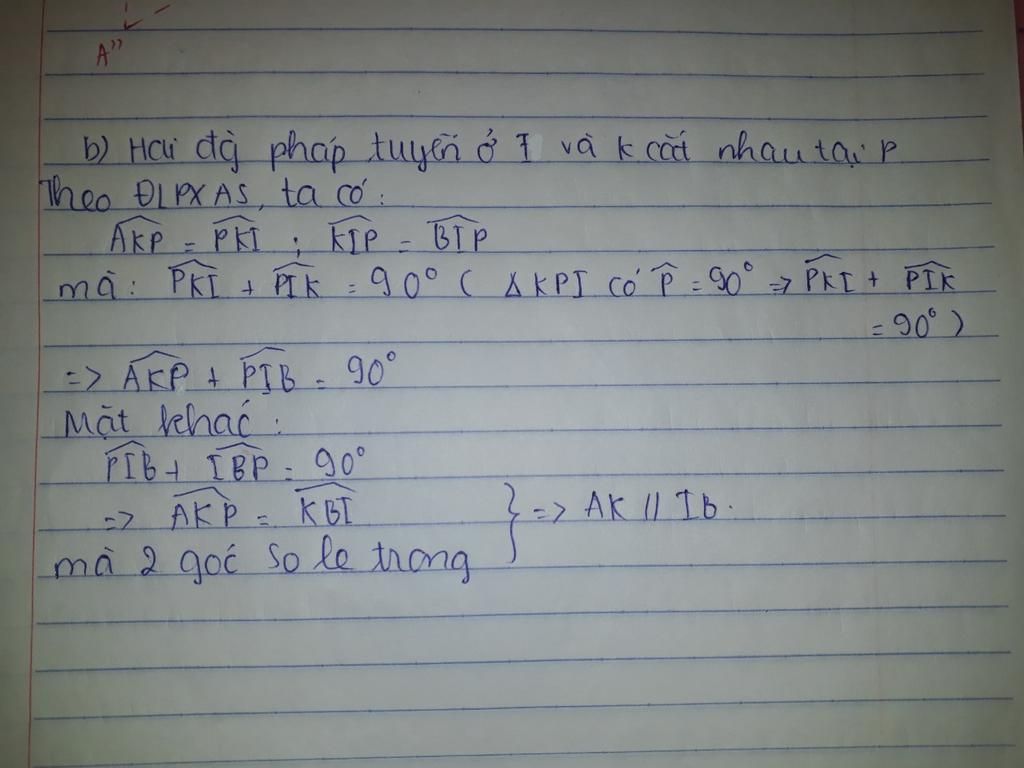 A"
b) Hai đg̀ pháp tuyến ở I và K cắt nhau tại P
Theo ĐLPXAS, ta có:
\widehat{AKP} = \widehat{PKI} ; \widehat{KIP} = \widehat{BIP}
mà: \widehat{PKI} + \widehat{PIK} = 90° ( Δ KPI có \widehat{P} = 90° => \widehat{PKI} + \widehat{PIK}
= 90° )
=> \widehat{AKP} + \widehat{PIB} = 90°
Mặt khác:
\widehat{PIB} + \widehat{IBP} = 90°
=> \widehat{AKP} = \widehat{KBI} } => AK // IB.
mà 2 góc so le trong